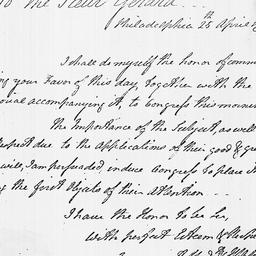 To the Sieur Gerard
Philadelphia 25th April
I shall do myself the honor of commu
ing your Favor of this day, together with the
accompanying it, to Congress this morning
The Importance of the Subject, as well
respect due to the applications of their good & gr
will, I am persuaded, induce Congress to place it
the first Objects of their Attention
I have the Honor to be Sir,
With perfect Esteem & Respect